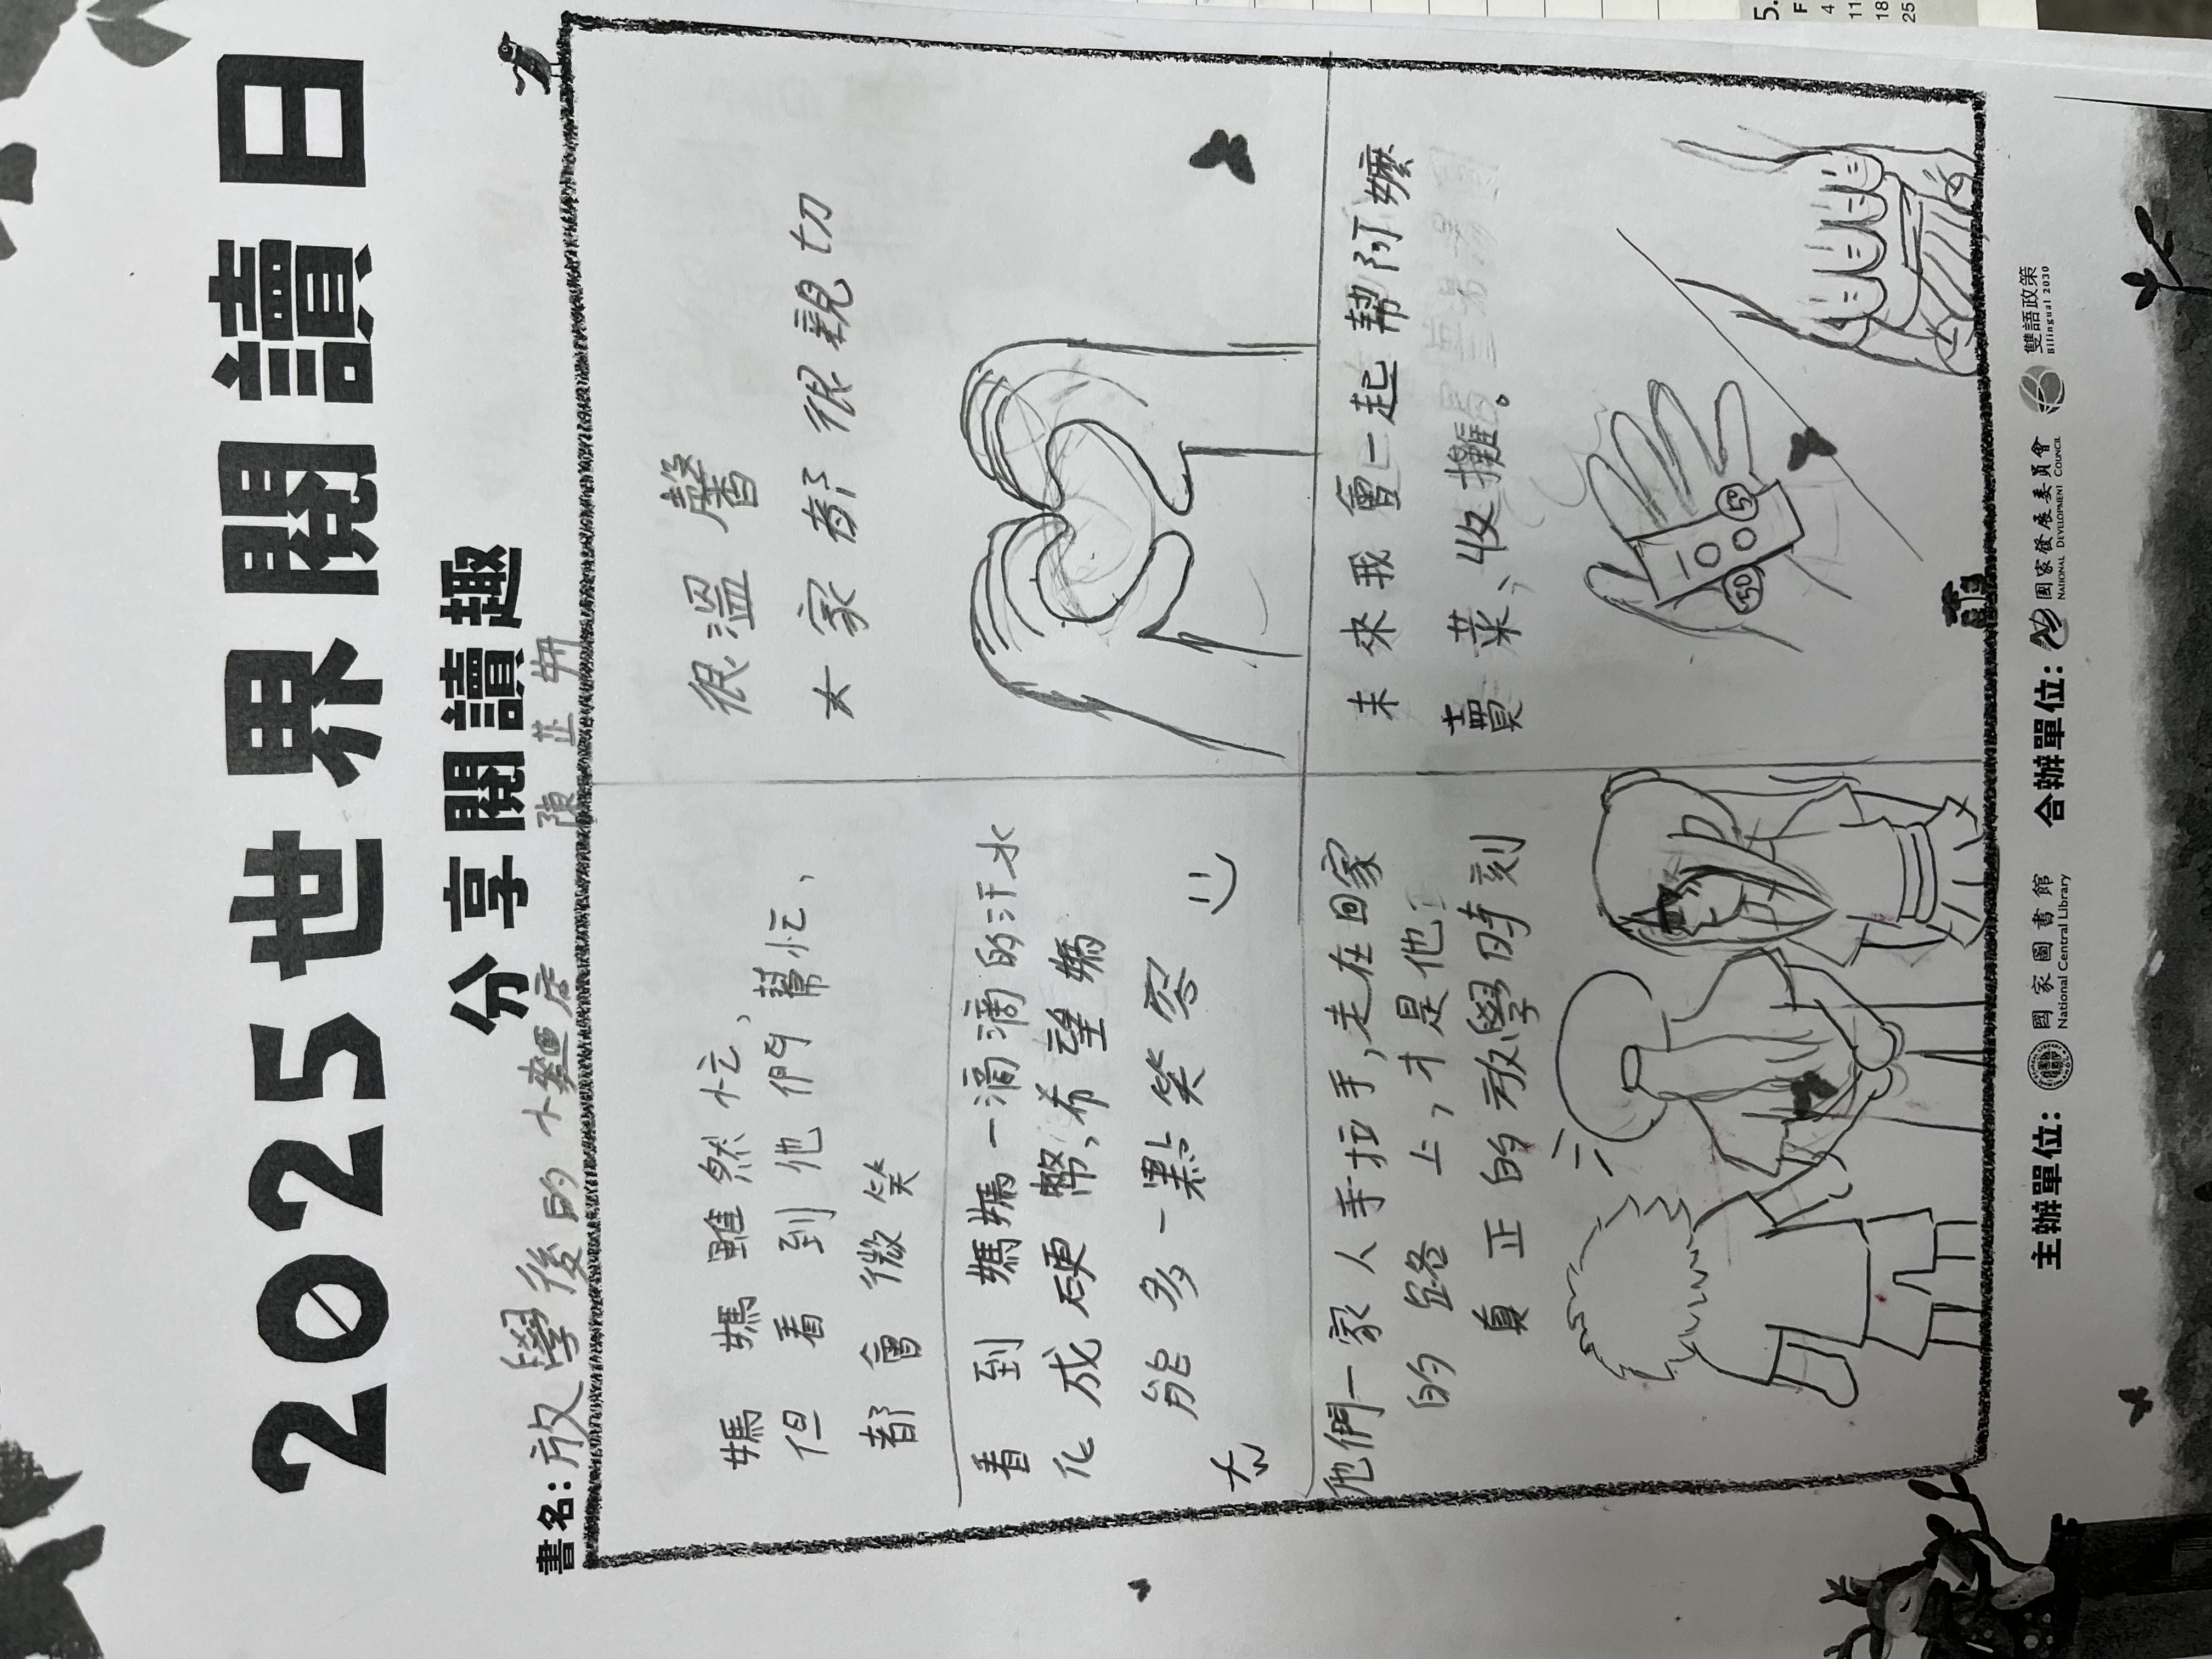 2025世界閱讀日
分享閱讀趣
書名:放學後的小麵店
陳芷妍
媽媽雖然忙,
但看到他們幫忙,
都會微笑
看到媽媽一滴滴的汗水
化成硬幣、希望媽
能多一點笑容
很溫馨
大家都很親切
他們一家人手拉手,走在回家
的路上,才是他
真正的放學時刻
未來我會一起幫阿嬤
賣菜、收攤。
100
50
50
主辦單位:
國家圖書館
National Central Library
合辦單位:
國家發展委員會
National Development Council
雙語政策
Bilingual 2030
5.
F
4
11
18
25